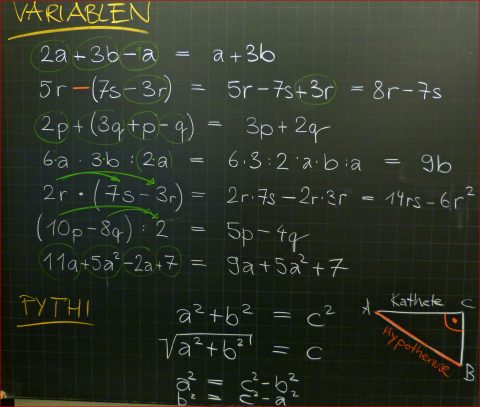 VARIABLEN
2a+3b-a = a+3b
5r-(7s-3r) = 5r-7s+3r = 8r-7s
2p+(3q+p-q) = 3p+2q
6·a·3b:2a = 6·3:2·a·b:a = 9b
2r·(7s-3r) = 2r·7s-2r·3r = 14rs-6r²
(10p-8q):2 = 5p-4q
11a+5a²-2a+7 = 9a+5a²+7
PYTHI
a²+b² = c²
√(a²+b²) = c
a² = c²-b²
b² = c²-a²
A Kathete C
Hypothenuse
B